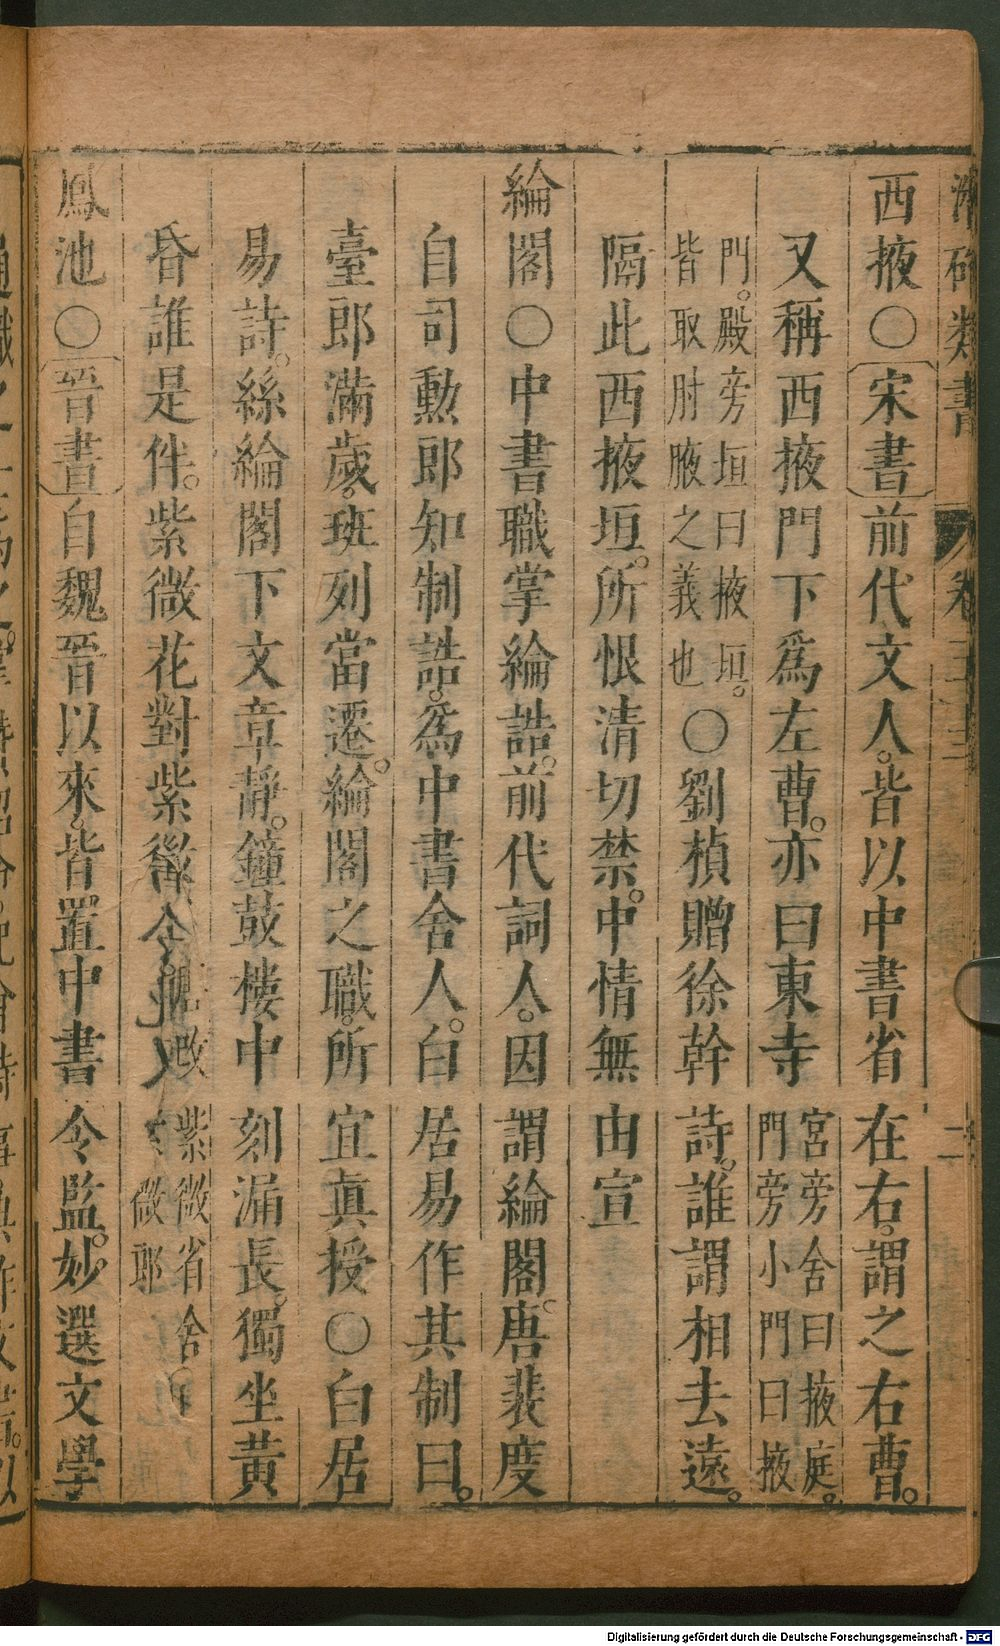 類書 卷
西掖○宋書前代文人。皆以中書省在右。謂之右曹。
又稱西掖門下爲左曹。亦曰東寺宮旁舍曰掖庭。門旁小門曰掖
門。殿旁垣曰掖垣。皆取肘腋之義也○劉楨贈徐幹詩。誰謂相去遠。
隔此西掖垣。所恨清切禁。中情無由宣
綸閣○中書職掌綸誥。前代詞人。因謂綸閣。唐裴度
自司勲郎知制誥。爲中書舍人。白居易作其制曰。
臺郎滿歲。班列當遷。綸閣之職。所宜眞授○白居
易詩。絲綸閣下文章靜。鐘鼓樓中刻漏長。獨坐黄
昏誰是伴。紫微花對紫微
鳳池○晉書自魏晉以來。皆置中書令監。妙選文學
Digitalisierung gefördert durch die Deutsche Forschungsgemeinschaft - DFG